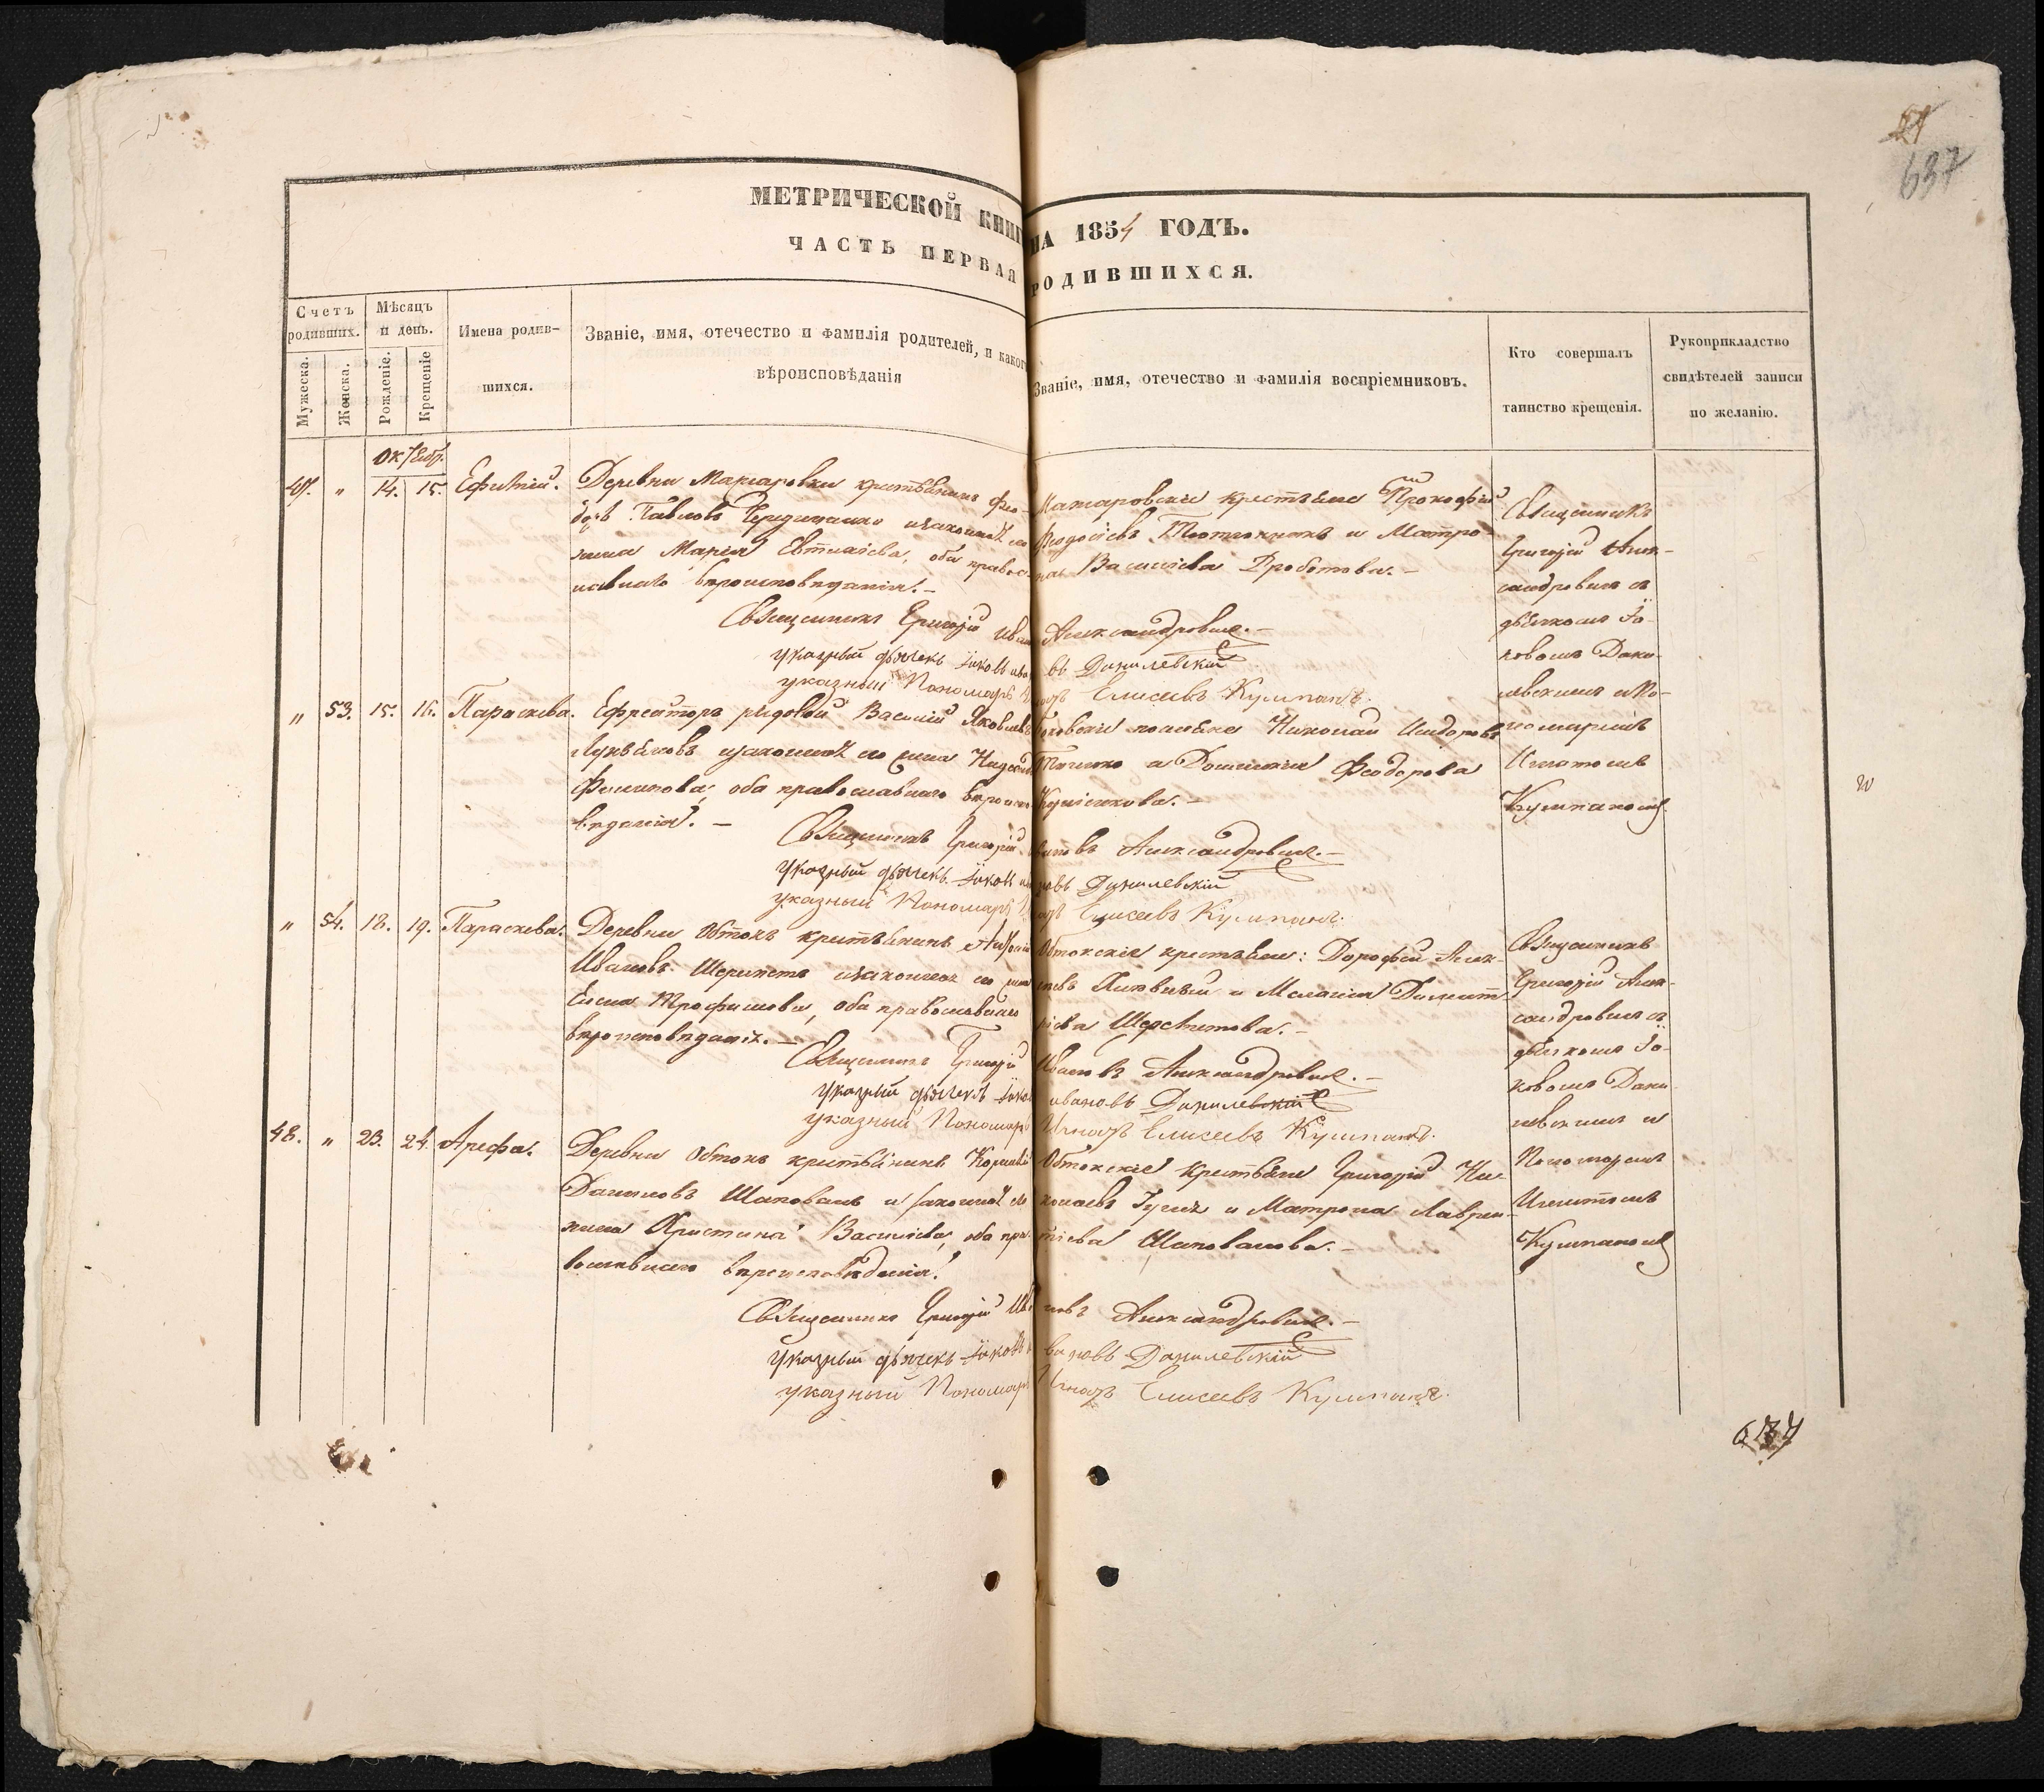 637
МЕТРИЧЕСКОЙ КНИГ НА 1854 ГОДЪ.
ЧАСТЬ ПЕРВАЯ РОДИВШИХСЯ.
Счетъ родивших.
Мужеска.
Женска.
Мѣсяцъ и день.
Рожденіе.
Крещеніе
Имена родив-
шихся.
Званіе, имя, отечество и фамилія родителей, и каког
вѣроисповѣданія
Званіе, имя, отечество и фамилія воспріемниковъ.
Кто совершалъ
таинство крещенія.
Рукоприкладство
свидѣтелей записи
по желанію.
Октябр.
47. " 14. 15. Ефимій. Деревни Макаровки крестьянинъ Фео-
доръ Павловъ и законная его
жина Марія Евтихіева, оба правос-
лавнаго вѣроисповѣданія.-
Макаровскіе крестьяне Прокофій
Феодосіевъ и Матро-
на Василіева Дроботова.-
Священникъ
Григорій Алек-
сандровичъ съ
дьячкомъ Іа-
ковомъ Дани-
левскимъ и По-
номаремъ
Игнатомъ
Кулипаномъ
Священникъ Григорій Иван Александровичъ.-
указный дьячекъ Іаковъ ива въ Данилевскій
указный Пономарь Елисеевъ Кулипанъ.
" 53. 15. 16. Параскева. Ефрейтора рядовой Василій Яковлевъ
Лукьяновъ и законная его жина Надежда
Филипова, оба православнаго вѣроиспо-
вѣданія. -
Николай Исидоровъ
и Домникія Феодорова
Священникъ Григорій Ивановъ Александровичъ.-
указный дьячекъ Іаковъ ивановъ Данилевскій
указный Пономарь Елисеевъ Кулипанъ.
" 54. 18. 19. Параскева. Деревни Обтокъ крестьянинъ Антоній
Ивановъ Шерстетъ и законная его жина
Елена Трофимова, оба православнаго
вѣроисповѣданія. -
Обтокскіе крестьяне: Дорофей Алек-
сѣевъ и Меланія Димит-
ріева Шерстетова. -
Священникъ
Григорій Алек-
сандровичъ съ
дьячкомъ Іа-
ковомъ Дани-
левскимъ и
Пономаремъ
Игнатомъ
Кулипаномъ
Священникъ Григорій Ивановъ Александровичъ. -
указный дьячекъ Іаковъ ивановъ Данилевскій
указный Пономарь Игнатъ Елисеевъ Кулипанъ.
48. " 23. 24. Арефа. Деревни Обтокъ крестьянинъ Корнилій
Даниловъ Шаповалъ и законная его
жина Христина Василіева, оба пра-
вославнаго вѣроисповѣданія.
Обтокскіе крестьяне Григорій Ни-
колаевъ и Матрона Лаврен-
тіева Шаповалова. -
Священникъ Григорій Ивановъ Александровичъ.-
указный дьячекъ Іаковъ ивановъ Данилевскій
указный Пономарь Игнатъ Елисеевъ Кулипанъ.